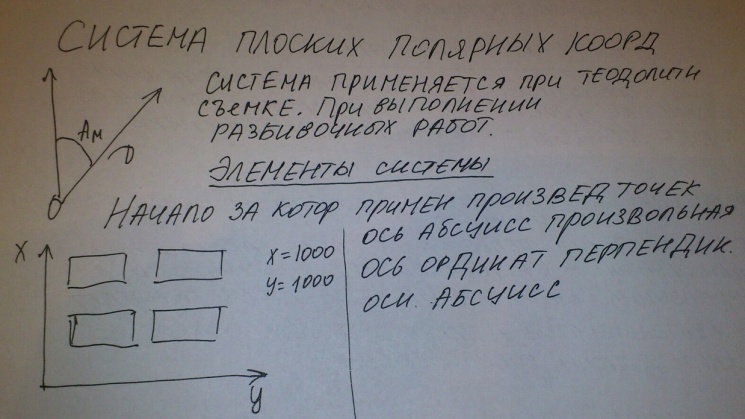 СИСТЕМА ПЛОСКИХ ПОЛЯРНЫХ КООРД
СИСТЕМА ПРИМЕНЯЕТСЯ ПРИ ТЕОДОЛИТН
СЪЕМКЕ. ПРИ ВЫПОЛНЕНИИ
РАЗБИВОЧНЫХ РАБОТ.
Aм
D
O
ЭЛЕМЕНТЫ СИСТЕМЫ
НАЧАЛО ЗА КОТОР ПРИМЕН ПРОИЗВЕД ТОЧЕК
ОСЬ АБСЦИСС ПРОИЗВОЛЬНАЯ
ОСЬ ОРДИНАТ ПЕРПЕНДИК.
ОСИ. АБСЦИСС
X
X=1000
У=1000
У